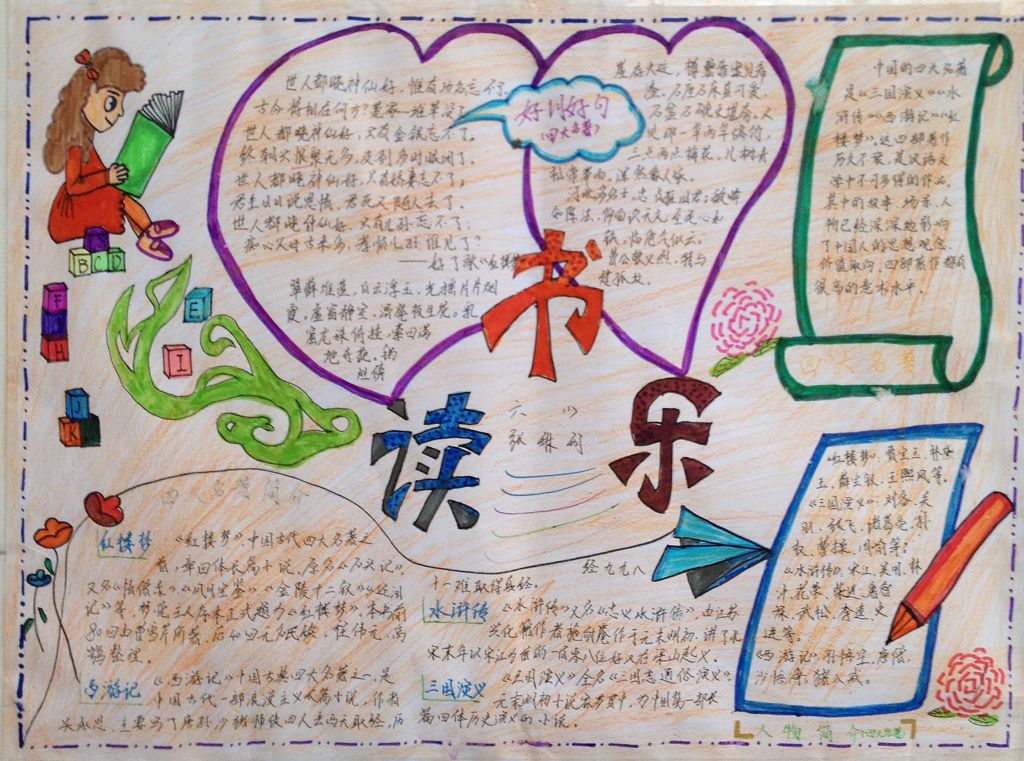 世人都晓神仙好，惟有功名忘不了，
古今将相在何方？荒冢一堆草没了
世人都晓神仙好，只有金银忘不了，
终朝只恨聚无多，及到多时眼闭了。
世人都晓神仙好，只有娇妻忘不了，
君生日日说恩情，君死又随人去了。
世人都晓神仙好，只有儿孙忘不了，
痴心父母古来多，孝顺儿孙谁见了？
——好了歌《红楼梦
翠藓堆蓝，白云浮玉，光摇片片烟
霞。虚窗静室，滑凳板生花。乳
窟龙珠倚挂，萦回满
地奇葩。锅
好词好句
(四大名著)
石座石床真可爱，
石盆石碗更堪夸。又
见那一竿两竿修竹，
三点两点梅花。几树青
松常带雨，浑然
书
读
乐
六
张
中国的四大名著
是《三国演义》《水
浒传》《西游记》《红
楼梦》。这四部著作
历史不衰，是汉语文
学中不可多得的作品。
其中的故事、场景、人
物已经深深地影响
了中国人的思想观念、
价值取向。四部著作都有
很高的艺术水平。
四大名著
B
C
D
F
H
E
I
J
K
四大名著简介
红楼梦
《红楼梦》，中国古代四大名著之
首，章回体长篇小说，原名《石头记》，
又名《情僧录》、《风月宝鉴》、《金陵十二钗》《还泪
记》等，梦觉主人序本正式题为《红楼梦》。本书前
80回由曹雪芹所著，后40回无名氏续，程伟元、高
鹗整理。
西游记
《西游记》中国古典四大名著之一，是
中国古代一部浪漫主义长篇小说，作者
吴承恩，主要写了唐孙沙猪师徒四人去西天取经，历
经九九八
十一难取得真经。
水浒传
《水浒传》又名《忠义水浒传》，由江苏
兴化籍作者施耐庵作于元末明初，讲了北
宋末年以宋江为首的一百零八位好汉在梁山起义。
三国演义
《三国演义》全名《三国志通俗演义》，
元末明初小说家罗贯中，为中国第一部长
篇章回体历史演义的小说。
《红楼梦》，贾宝玉、林黛
玉、薛宝钗、王熙凤等。
《三国演义》：刘备、关
羽、张飞、诸葛亮、孙
权、曹操、周瑜等；
《水浒传》宋江、吴用、林
冲、花荣、柴进、鲁智
深、武松、李逵、史
进等。
《西游记》：孙悟空、唐僧、
沙悟净、猪八戒。
人物简介(四大名著)